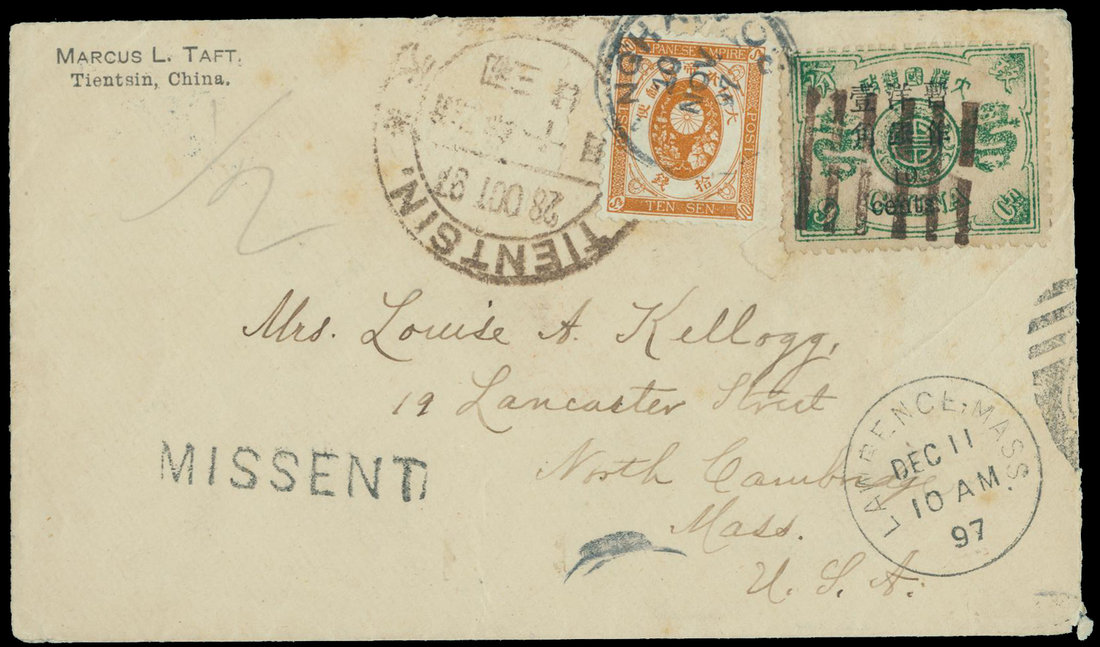 MARCUS L. TAFT,
Tientsin, China.
1/2
TIENTSIN.
28 OCT 97
JAPANESE EMPIRE
POST
拾
錢
TEN SEN
10
NOV
壹 洋 暫
角
10
cents
Mrs. Louise A. Kellogg,
19 Lancaster Street
North Cambridge
Mass.
U. S. A.
MISSENT
LAWRENCE, MASS.
DEC 11
10 AM
97